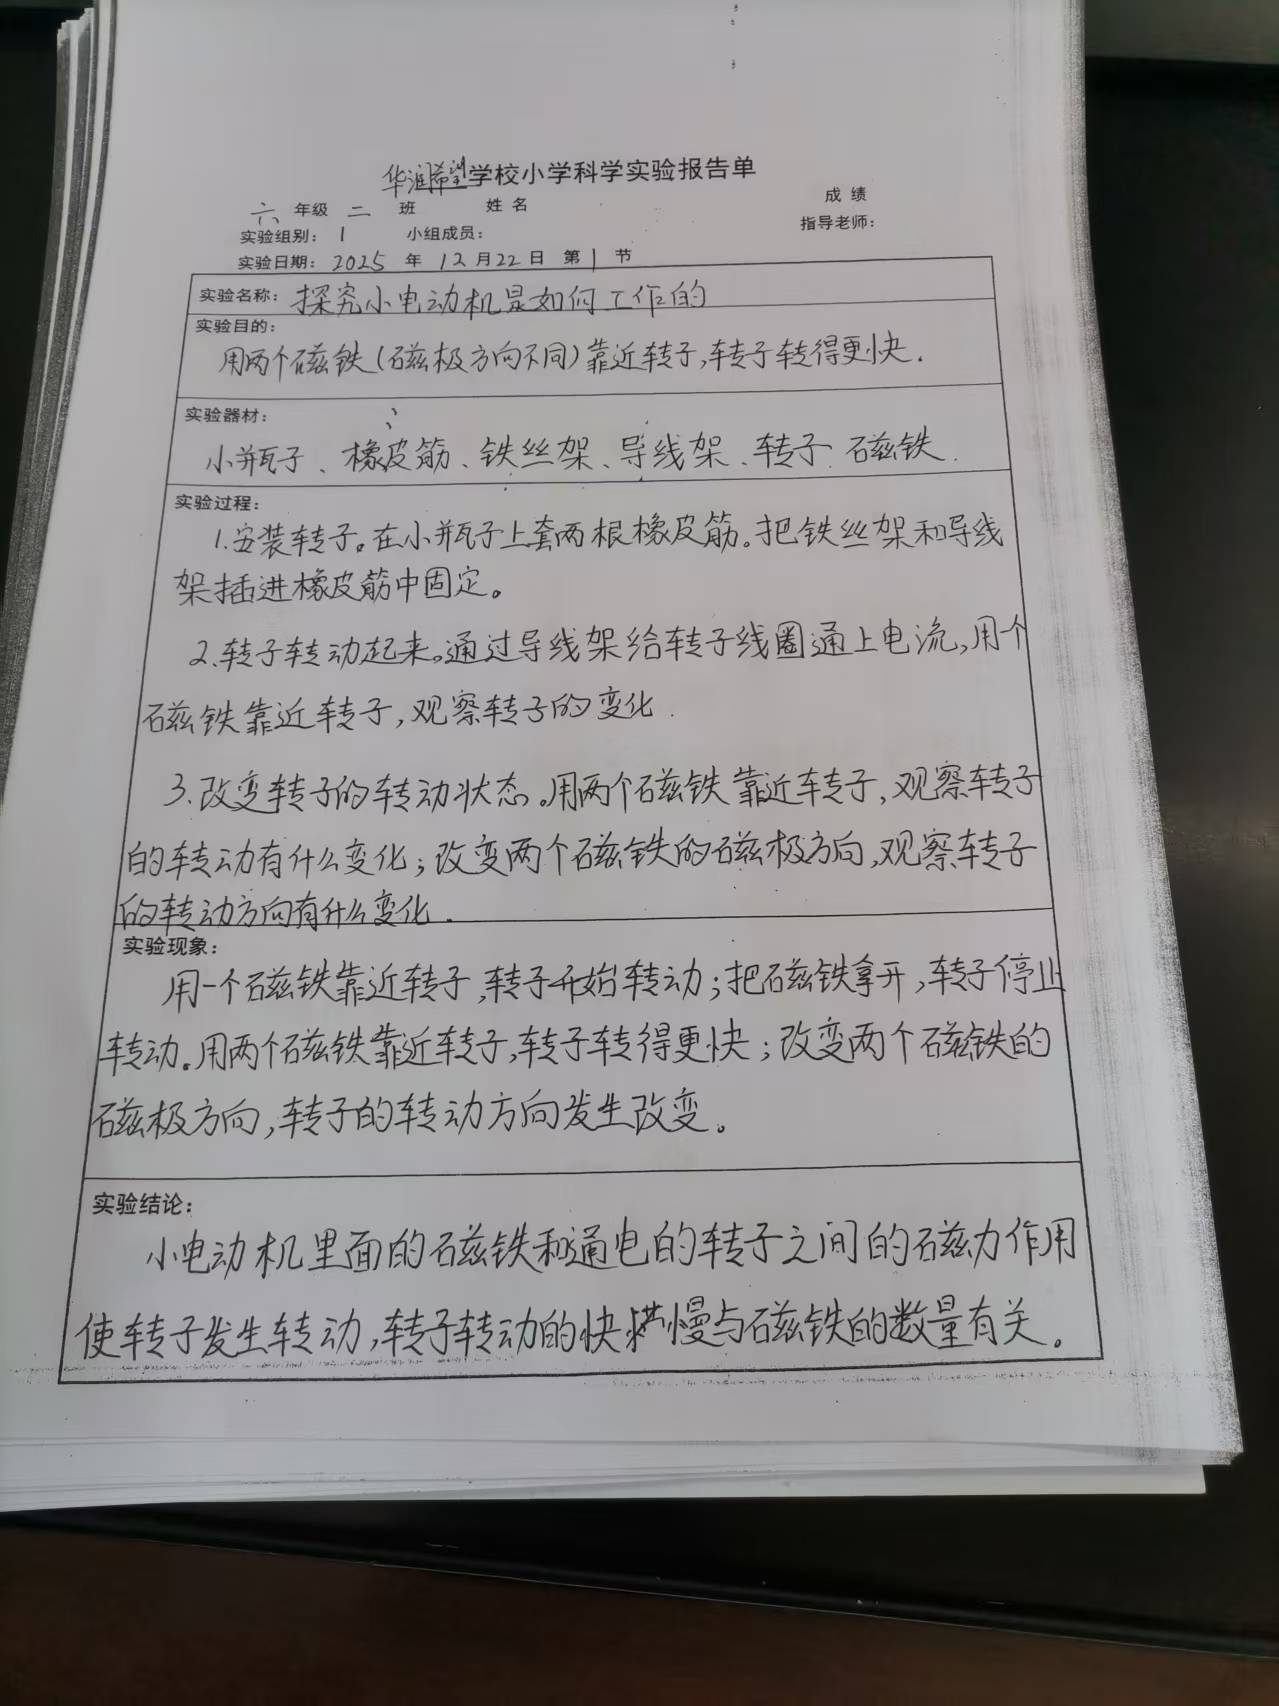 华润希望学校小学科学实验报告单
六 年级 二 班 姓 名 成 绩
实验组别: 1 小组成员: 指导老师:
实验日期: 2025 年 12 月 22 日 第 1 节
实验名称: 探究小电动机是如何工作的
实验目的:
用两个磁铁(磁极方向不同)靠近转子,转子转得更快.
实验器材:
小瓶子、橡皮筋、铁丝架、导线架、转子 磁铁.
实验过程:
1.安装转子。在小瓶子上套两根橡皮筋。把铁丝架和导线
架插进橡皮筋中固定。
2.转子转动起来。通过导线架给转子线圈通上电流,用个
磁铁靠近转子,观察转子的变化.
3.改变转子的转动状态。用两个磁铁靠近转子,观察转子
的转动有什么变化;改变两个磁铁的磁极方向,观察转子
的转动方向有什么变化.
实验现象:
用一个磁铁靠近转子,转子开始转动;把磁铁拿开,转子停止
转动。用两个磁铁靠近转子,转子转得更快;改变两个磁铁的
磁极方向,转子的转动方向发生改变。
实验结论:
小电动机里面的磁铁和通电的转子之间的磁力作用
使转子发生转动,转子转动的快慢与磁铁的数量有关。